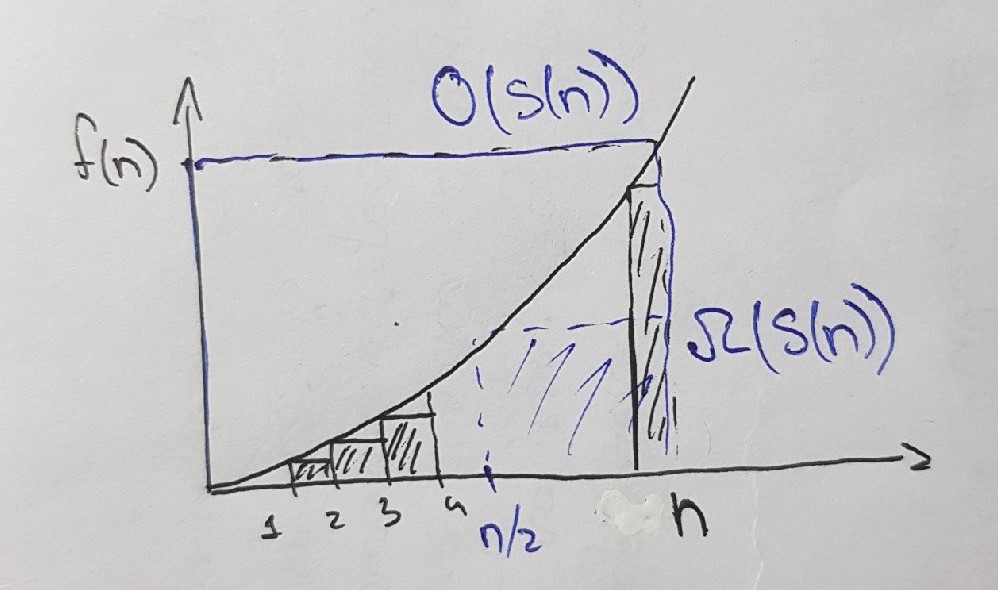 O(S(n))
f(n)
Ω(S(n))
1 2 3 4
n/2
n